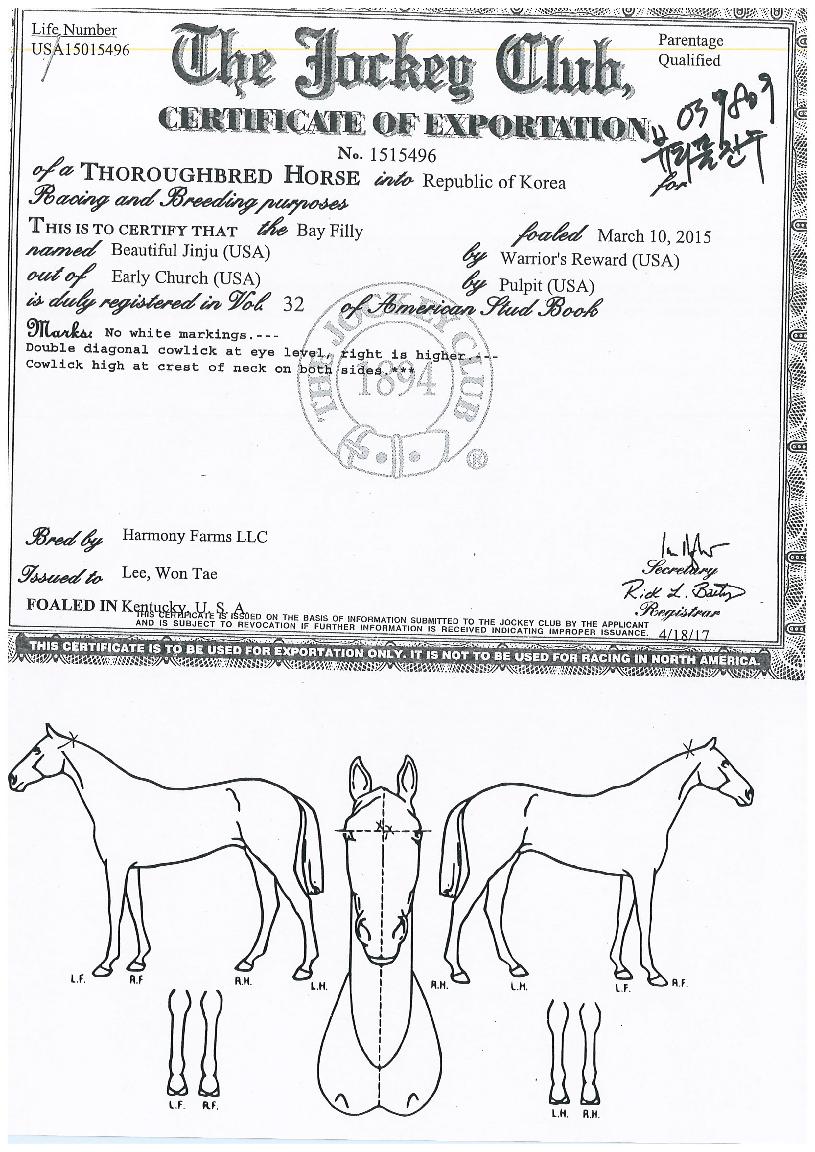 Life Number
USA15015496
Parentage
Qualified
The Jockey Club,
CERTIFICATE OF EXPORTATION
039809
뷰티풀진주
No. 1515496
of a THOROUGHBRED HORSE into Republic of Korea for
Racing and Breeding purposes
THIS IS TO CERTIFY THAT the Bay Filly foaled March 10, 2015
named Beautiful Jinju (USA) by Warrior's Reward (USA)
out of Early Church (USA) by Pulpit (USA)
is duly registered in Vol. 32 of American Stud Book
Marks: No white markings.---
Double diagonal cowlick at eye level, right is higher.---
Cowlick high at crest of neck on both sides.***
THE JOCKEY CLUB
1894
®
Bred by Harmony Farms LLC
Secretary
Issued to Lee, Won Tae
Registrar
FOALED IN Kentucky, U. S. A.
THIS CERTIFICATE IS ISSUED ON THE BASIS OF INFORMATION SUBMITTED TO THE JOCKEY CLUB BY THE APPLICANT
AND IS SUBJECT TO REVOCATION IF FURTHER INFORMATION IS RECEIVED INDICATING IMPROPER ISSUANCE. 4/18/17
THIS CERTIFICATE IS TO BE USED FOR EXPORTATION ONLY. IT IS NOT TO BE USED FOR RACING IN NORTH AMERICA.
L.F. R.F R.H. L.H. R.H. L.H. L.F. R.F.
L.F. R.F. L.H. R.H.